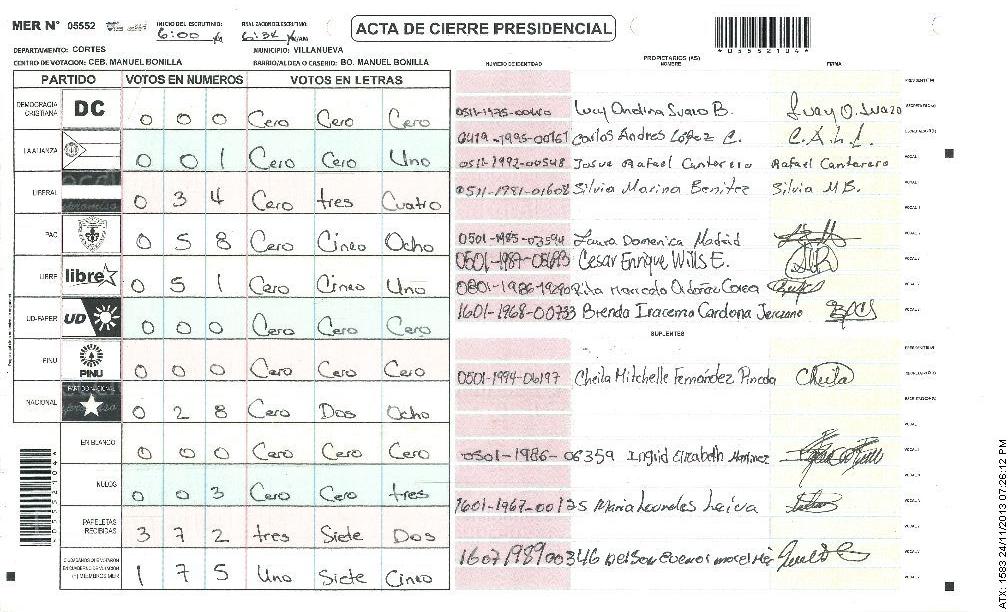 MER Nº 05552 INICIO DEL ESCRUTINIO: 6:00 FINALIZACION DEL ESCRUTINIO: 6:34
ACTA DE CIERRE PRESIDENCIAL
*05552104*
DEPARTAMENTO: CORTES MUNICIPIO: VILLANUEVA
CENTRO DE VOTACION: CEB. MANUEL BONILLA BARRIO/ALDEA O CASERIO: BO. MANUEL BONILLA
PARTIDO VOTOS EN NUMEROS VOTOS EN LETRAS
DEMOCRACIA CRISTIANA DC 0 0 0 Cero Cero Cero
LA ALIANZA 0 0 1 Cero Cero Uno
LIBERAL 0 3 4 Cero tres Cuatro
PAC 0 5 8 Cero Cinco Ocho
LIBRE libre 0 5 1 Cero Cinco Uno
UD-FAPER UD 0 0 0 Cero Cero Cero
PINU PINU 0 0 0 Cero Cero Cero
NACIONAL PARTIDO NACIONAL 0 2 8 Cero Dos Ocho
EN BLANCO 0 0 0 Cero Cero Cero
NULOS 0 0 3 Cero Cero tres
PAPELETAS RECIBIDAS 3 7 2 tres Siete Dos
(*) MIEMBROS MER 1 7 5 Uno Siete Cinco
NUMERO DE IDENTIDAD PROPIETARIOS (AS) NOMBRE FIRMA
Lucy Ondina Suazo B. Lucy O. Suazo
Carlos Andres López C. C.A.L.C.
0511-1992-00548 Josue Rafael Cantarero Rafael Cantarero
0511-1981-01608 Silvia Marina Benitez Silvia M B.
0501-1985-03594 Laura Domenica Madrid
0501-1987-05693 Cesar Enrique Wills E.
1601-1968-00733 Brenda Iracema Cardona
SUPLENTES
0501-1994-06197 Cheila Mitchelle Fernández Pineda Cheila
0501-1986-06359 Ingrid Elizabeth Martinez
1601-1967-00125 Maria Lourdes Leiva
*05552104*
ATX: 1583 24/11/2013 07:26:12 PM